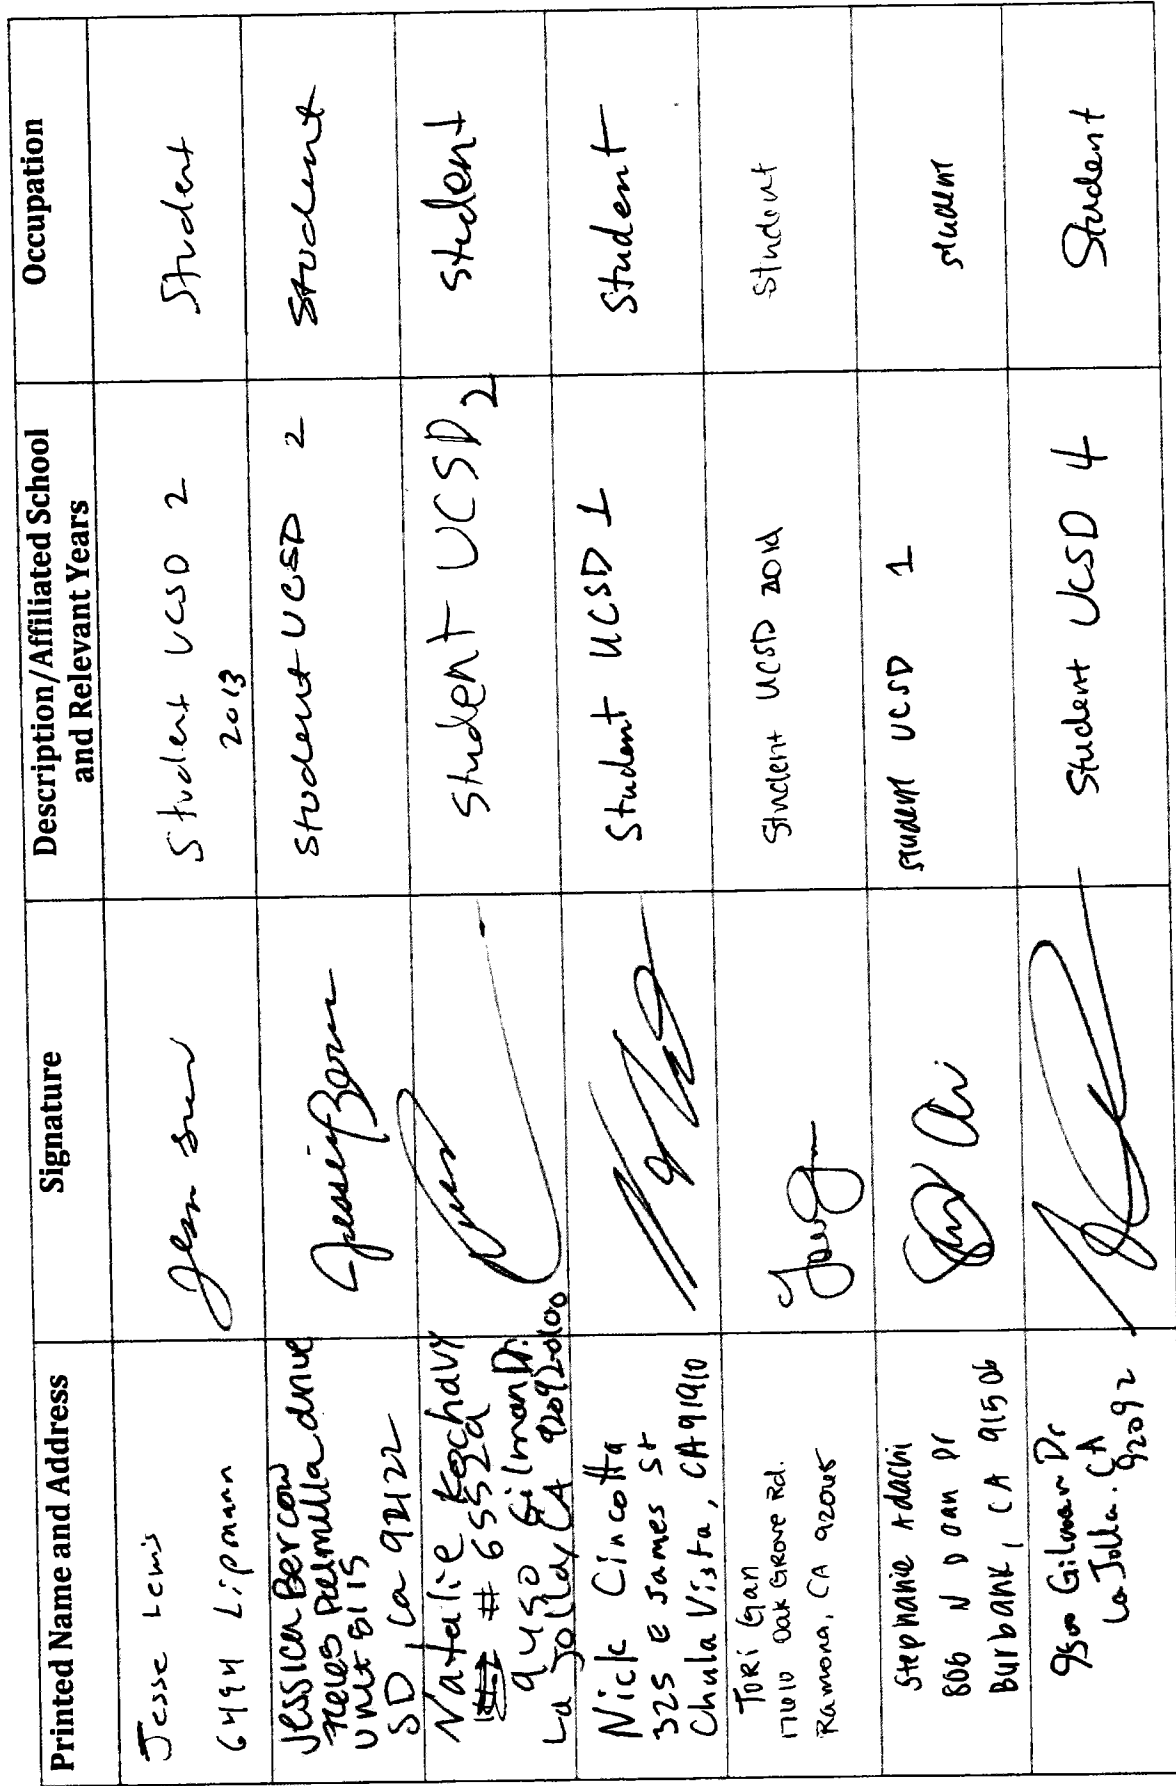 Printed Name and Address
Signature
Description/Affiliated School
and Relevant Years
Occupation
Jesse Lewis
6494 Lipmann
Student UCSD 2
2013
Student
Jessica Bercow
Palmilla drive
Unit 5115
SD, Ca 92122
Student UCSD 2
Student
Natalie Kochavy
# 65529
9450 Gilman Dr.
La Jolla, CA 92092-0100
Student UCSD 2
Student
Nick Cincotta
325 E James St
Chula Vista, CA 91910
Student UCSD 1
Student
TORI Gan
17610 Oak Grove Rd.
Ramona, CA 92065
Student UCSD 2014
Student
Stephanie Adachi
806 N Dan Dr
Burbank, CA 91506
student UCSD 1
student
9500 Gilman Dr
La Jolla. CA
92092
Student UCSD 4
Student